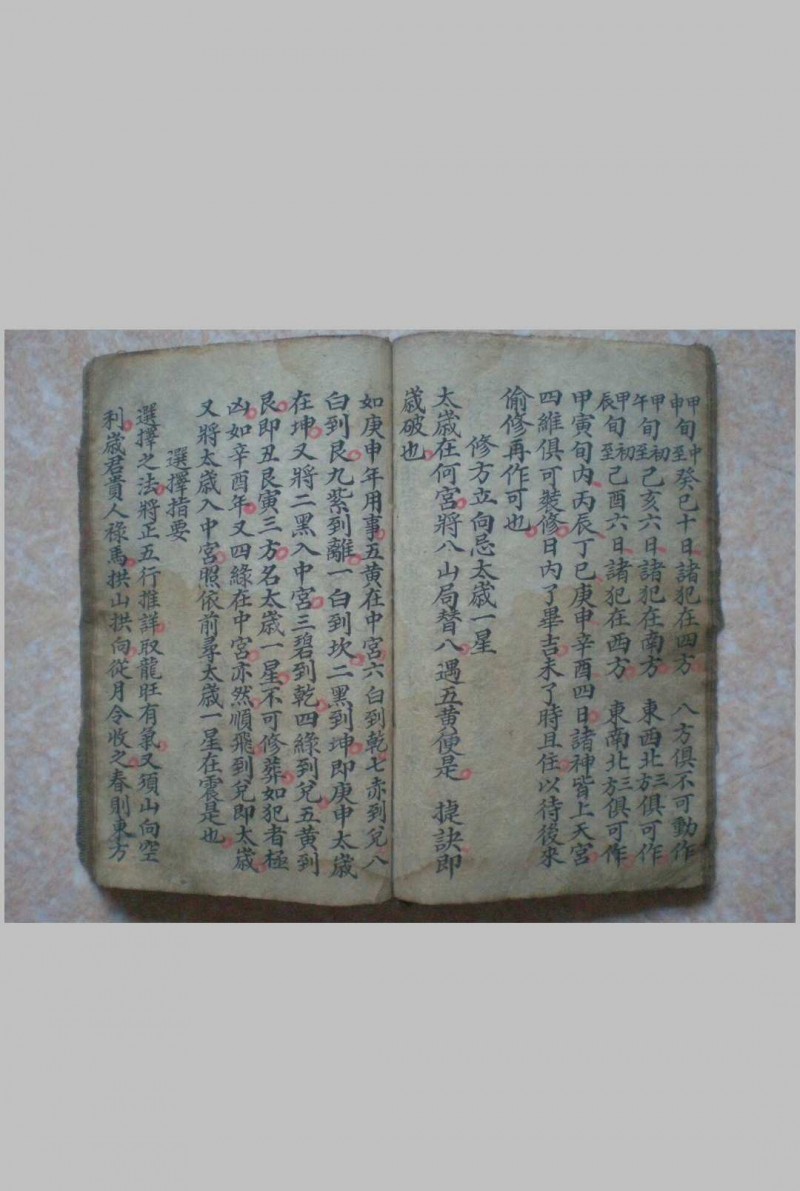 甲申旬中至癸巳十日諸犯在四方 八方俱不可動作
甲午旬初至己亥六日諸犯在南方 東西北三方俱可作
甲辰旬初至己酉六日諸犯在西方 東南北三方俱可作
甲寅旬内丙辰丁巳庚申辛酉四日諸神皆上天宮
四維俱可裝修日内了畢吉未了時且住以待後來
偷修再作可也
修方立向忌太歲一星
太歲在何宮將八山局替八遇五黃便是 掟訣即
歲破也
如庚申年用事五黃在中宮六白到乾七赤到兌八
白到艮九紫到離一白到坎二黑到坤即庚申太歲
在坤又將二黑入中宮三碧到乾四綠到兌五黃到
艮即丑艮寅三方名太歲一星不可修葬如犯者極
凶如辛酉年又四綠在中宮亦然順飛到兌即太歲
又將太歲入中宮照依前尋太歲一星在震是也
選擇指要
選擇之法將正五行推詳取龍旺有氣又須山向空
利歲君貴人祿馬拱山拱向從月令收之春則東方